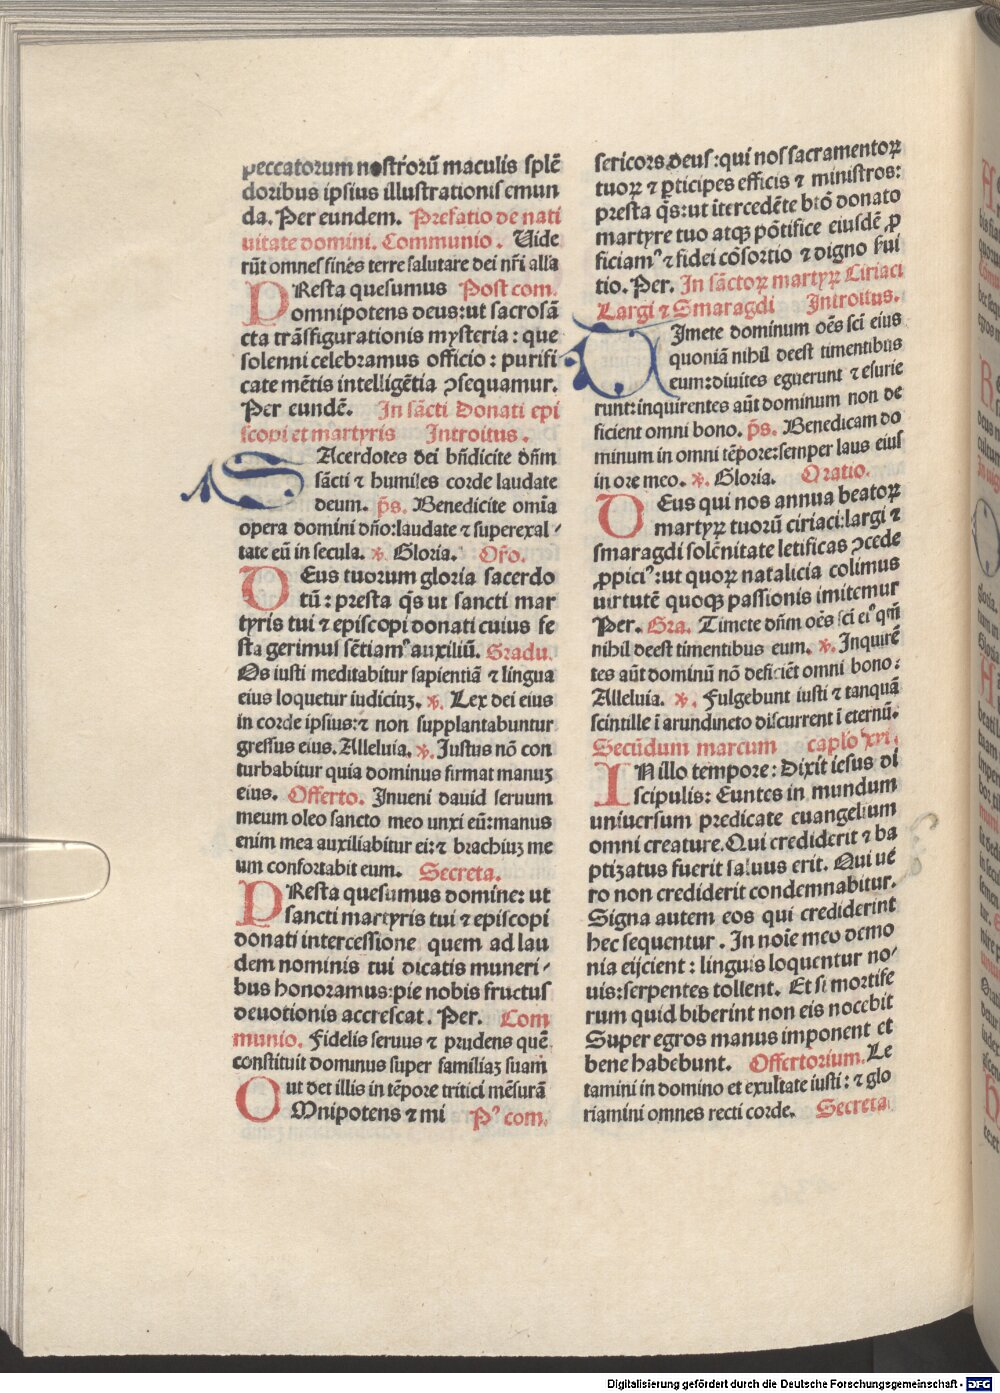 peccatorum nostrorū maculis splē
doribus ipsius illustrationis emun
da. Per eundem. Prefatio de nati
uitate domini. Communio. Uide
rūt omnes fines terre salutare dei nr̄i alla
PResta quesumus Post com.
omnipotens deus: ut sacrosā
cta trāsfigurationis mysteria: que
solenni celebramus officio: purifi
cate mētis intelligētia ꝯsequamur.
Per eundē. In sācti Donati epi
scopi et martyris Introitus.
SAcerdotes dei bn̄dicite dn̄m
sācti ⁊ humiles corde laudate
deum. ps̄. Benedicite omīa
opera domini dn̄o: laudate ⁊ superexal-
tate eū in secula. ℣. Gloria. Or̄o.
DEus tuorum gloria sacerdo
tū: presta q̄s ut sancti mar
tyris tui ⁊ episcopi donati cuius fe
sta gerimus sētiamꝰ auxiliū. Gradu.
Os iusti meditabitur sapientiā ⁊ lingua
eius loquetur iudiciuꝫ. ℣. Lex dei eius
in corde ipsius: ⁊ non supplantabuntur
gressus eius. Alleluia. ℣. Iustus nō con
turbabitur quia dominus firmat manuꝫ
eius. Offerto. Inueni dauid seruum
meum oleo sancto meo unxi eū: manus
enim mea auxiliabitur ei: ⁊ brachiuꝫ me
um confortabit eum. Secreta.
PResta quesumus domine: ut
sancti martyris tui ⁊ episcopi
donati intercessione quem ad lau
dem nominis tui dicatis muneri-
bus honoramus: pie nobis fructus
deuotionis accrescat. Per. Com
munio. Fidelis seruus ⁊ prudens quē
constituit dominus super familiaꝫ suam
ut det illis in tēpore tritici mēsurā
OMnipotens ⁊ mi Pꝰ com.
sericors deus: qui nos sacramentoꝝ
tuoꝝ ⁊ ꝑticipes efficis ⁊ ministros:
presta q̄s: ut ītercedēte btō donato
martyre tuo atqꝫ pōtifice eiusdē ꝓ
ficiamꝰ ⁊ fidei cōsortio ⁊ digno ẜui
tio. Per. In sāctoꝝ martyꝝ Ciriaci
Largi ⁊ Smaragdi Introitus.
TImete dominum oēs sc̄i eius
quoniā nihil deest timentibus
eum: diuites eguerunt ⁊ esurie
runt: inquirentes aūt dominum non de
ficient omni bono. ps̄. Benedicam do
minum in omni tēpore: semper laus eius
in ore meo. ℣. Gloria. Oratio.
DEus qui nos annua beatoꝝ
martyꝝ tuorū ciriaci: largi ⁊
smaragdi solēnitate letificas ꝯcede
ꝓpiciꝰ: ut quoꝝ natalicia colimus
uirtutē quoqꝫ passionis imitemur
Per. Gra. Timete dn̄m oēs sc̄i eiꝰ qm̄
nihil deest timentibus eum. ℣. Inquirē
tes aūt dominū nō deficiēt omni bono:
Alleluia. ℣. Fulgebunt iusti ⁊ tanquā
scintille ī arundineto discurrent ī eternū.
Secūdum marcum caplo xvi.
IN illo tempore: Dixit iesus di
scipulis: Euntes in mundum
uniuersum predicate euangelium
omni creature. Qui crediderit ⁊ ba
ptizatus fuerit saluus erit. Qui ue
ro non crediderit condemnabitur.
Signa autem eos qui crediderint
hec sequentur. In noīe meo demo
nia eijcient: linguis loquentur no-
uis: serpentes tollent. Et si mortife
rum quid biberint non eis nocebit
Super egros manus imponent et
bene habebunt. Offertorium. Le
tamini in domino et exultate iusti: ⁊ glo
riamini omnes recti corde. Secreta.
Digitalisierung gefördert durch die Deutsche Forschungsgemeinschaft - DFG